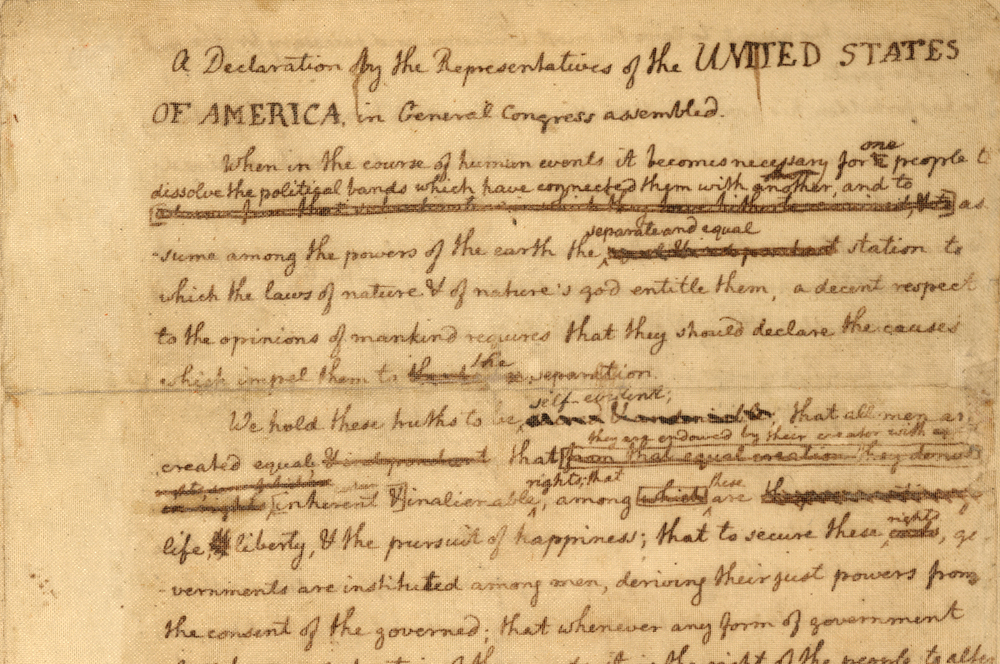 A Declaration by the Representatives of the UNITED STATES
OF AMERICA, in General Congress assembled.
one
When in the course of human events it becomes necessary for people t
dissolve the political bands which have connected them with another, and to
as
separate and equal
-sume among the powers of the earth the station to
which the laws of nature & of nature's god entitle them, a decent respect
to the opinions of mankind requires that they should declare the causes
the
which impel them to separation.
self-evident;
We hold these truths to be that all men ar
they are endowed by their creator with
created equal & independent that from that equal creation they
rights; that
these
inherent & inalienable, among which are
rights
life, liberty, & the pursuit of happiness; that to secure these, go
-vernments are instituted among men, deriving their just powers from
the consent of the governed; that whenever any form of government
it is the right of the people to alter